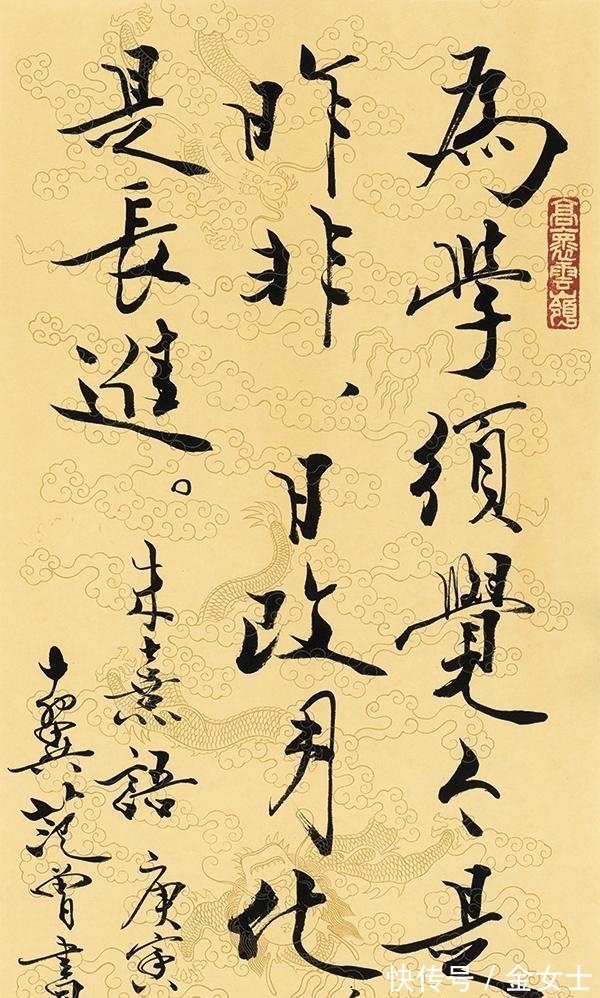 為學須覺今是
昨非、日改月化
是長進。
朱熹語 庚寅
十翼范曾書
快传号 / 金女士